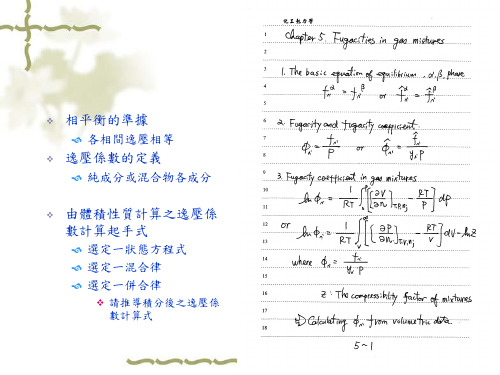 相平衡的準據
各相間逸壓相等
逸壓係數的定義
純成分或混合物各成分
由體積性質計算之逸壓係
數計算起手式
選定一狀態方程式
選定一混合律
選定一併合律
請推導積分後之逸壓係
數計算式
化工熱力學
1 Chapter 5. Fugacities in gas mixtures
2
3 1. The basic equation of equilibrium, α, β, phase
4 f_i^α = f_i^β or f̂_i^α = f̂_i^β
5
6 2. Fugacity and fugacity coefficient.
7 φ_i = f_i / P or φ̂_i = f̂_i / (y_i P)
8
9 3. Fugacity coefficient in gas mixtures
10
11 ln φ_i = 1/RT ∫ [ [∂V/∂n_i]_{T,P,n_j} - RT/P ] dP
12 or
13 ln φ_i = 1/RT ∫ [ [∂P/∂n_i]_{T,V,n_j} - RT/V ] dV - ln Z
14 where φ_i = f_i / (y_i P)
15
16 Z : The compressibility factor of mixtures
17
18 Calculating φ_i from volumetric data.
5~1